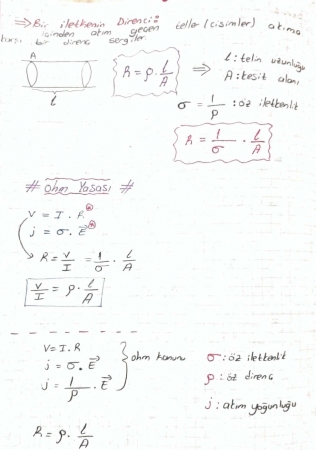 ⇒ Bir iletkenin Direnci:
içinden akım geçen teller (cisimler) akıma
karşı bir direnç sergiler.
A
l
R = ρ · l/A ⇒ l: telin uzunluğu
A: kesit alanı
σ = 1/ρ : öz iletkenlik
R = 1/σ · l/A
# Ohm Yasası #
V = I . R
j = σ . E⃗
R = V/I = 1/σ · l/A
V/I = ρ · l/A
V = I . R
j = σ . E⃗
j = 1/ρ . E⃗
} ohm kanunu
σ : öz iletkenlik
ρ : öz direnç
j : akım yoğunluğu
R = ρ · l/A